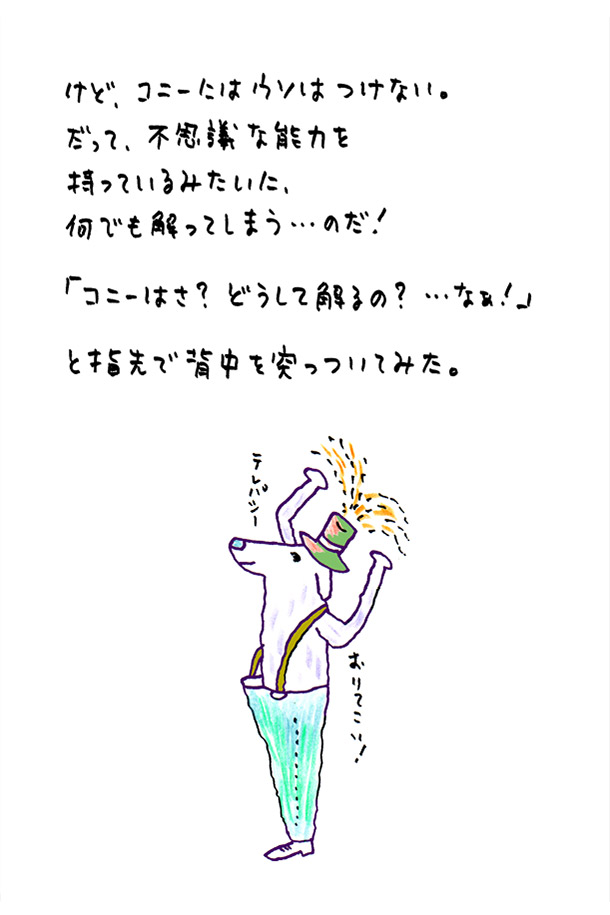 けど、コニーにはウソはつけない。
だって、不思議な能力を
持っているみたいに、
何でも解ってしまう…のだ!
「コニーはさ?どうして解るの?…なぁ!」
と指先で背中を突っついてみた。
テレパシー
おりてこい!